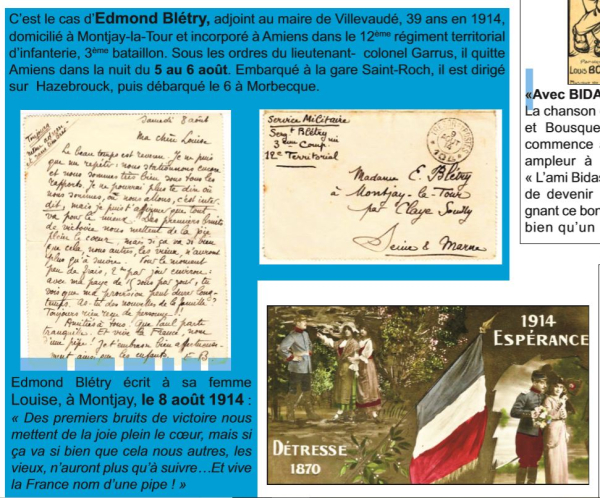 C'est le cas d'Edmond Blétry, adjoint au maire de Villevaudé, 39 ans en 1914,
domicilié à Montjay-la-Tour et incorporé à Amiens dans le 12ème régiment territorial
d'infanterie, 3ème bataillon. Sous les ordres du lieutenant- colonel Garrus, il quitte
Amiens dans la nuit du 5 au 6 août. Embarqué à la gare Saint-Roch, il est dirigé
sur Hazebrouck, puis débarqué le 6 à Morbecque.
Samedi 8 août
Toujours
même adresse
Ma chère Louise.
Le beau temps est revenu. Je ne puis
que me répéter : nous stationnons encore
et nous sommes très bien sous tous les
rapports. Je ne pourrai plus te dire où
nous sommes, où nous allons, c'est inter-
dit, mais je puis t'affirmer que tout
va pour le mieux. Des premiers bruits
de victoire nous mettent de la joie
plein le cœur, mais si ça va si bien
que cela nous autres, les vieux, n'auront
plus qu'à suivre. Pour le moment
peu de frais, 2 par jour environ :
avec ma paye de 15 sous par jour, tu
vois que ma provision peut durer long-
temps. As-tu des nouvelles de la famille
Toujours rien reçu de personne !!
Amitiés à tous. Que Paul parte
tranquille. Et vive la France, nom
d'une pipe ! Je t'embrasse bien affectueuse-
ment ainsi que les enfants. E B
Service Militaire
Sergt Blétry
3ème Comp.
12e Territorial
Madame E. Blétry
à Montjay-la-Tour
par Claye Souilly
Seine & Marne
Edmond Blétry écrit à sa femme
Louise, à Montjay, le 8 août 1914 :
« Des premiers bruits de victoire nous
mettent de la joie plein le cœur, mais si
ça va si bien que cela nous autres, les
vieux, n'auront plus qu'à suivre…Et vive
la France nom d'une pipe ! »
1914
ESPÉRANCE
DÉTRESSE
1870
LOUIS BO
«Avec BIDA
La chanson
et Bousque
commence
ampleur à
« L'ami Bidas
de devenir
gnant ce bon
bien qu'un